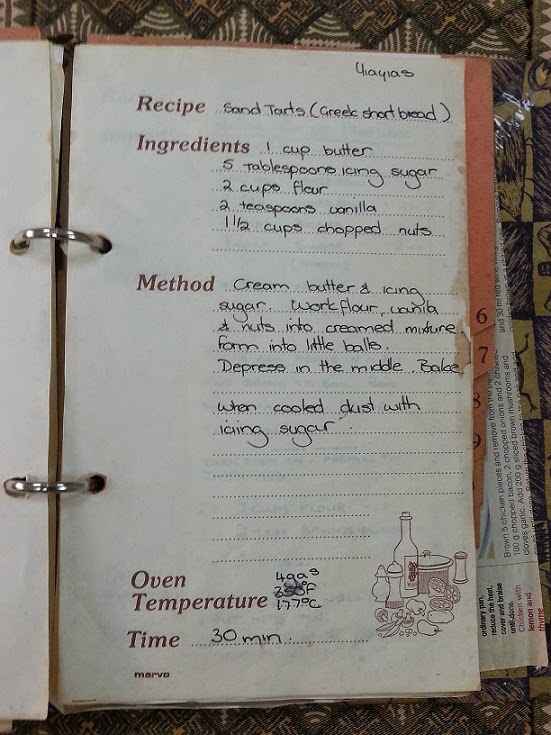 Yiayias
Recipe Sand Tarts (Greek shortbread)
Ingredients 1 cup butter
5 Tablespoons icing sugar
2 cups flour
2 teaspoons vanilla
1 1/2 cups chopped nuts
Method Cream butter & icing
sugar. Work flour, vanilla
& nuts into creamed mixture
form into little balls.
Depress in the middle. Bake
when cooked dust with
icing sugar.
Oven
Temperature
350°F
177°C
Time 30 min.
marvo
6
7
8
9
and 30 ml red wine
Brown 5 chicken pieces and remove from the
100 g chopped bacon, 2 chopped onions and 2 crushed
cloves garlic. Add 200 g sliced brown mushrooms and
ordinary pan,
reduce the heat,
cover and braise
until done.
Chicken with
lemon and
thyme